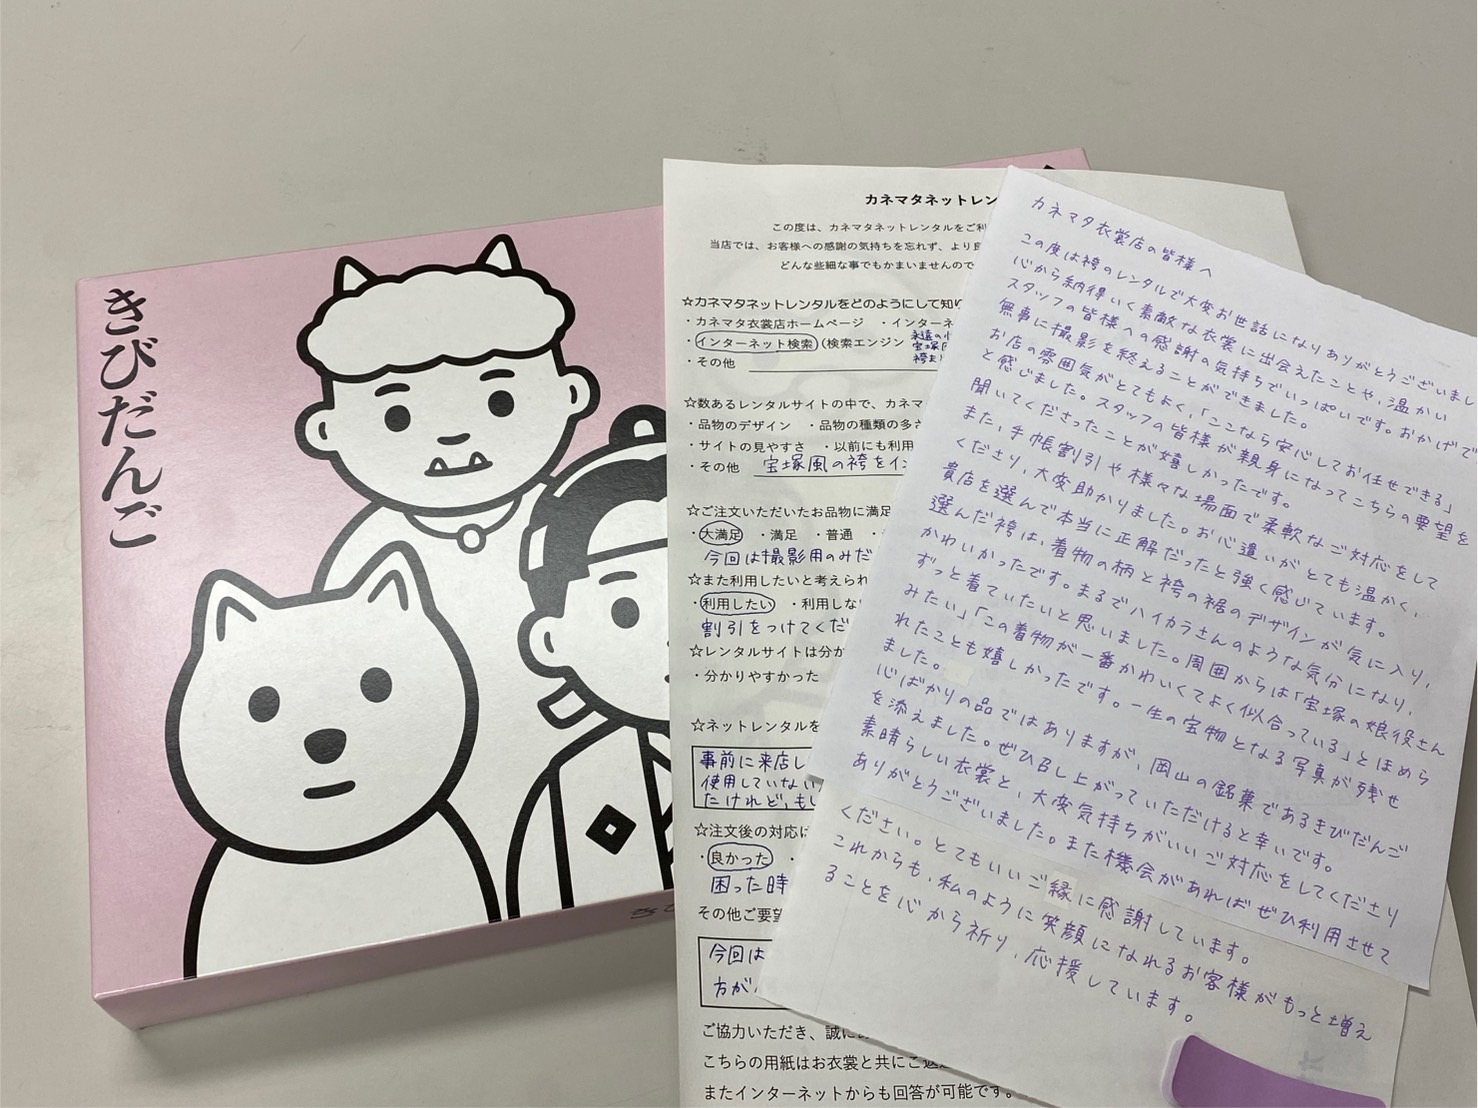 きびだんご
カネマタネットレン
この度は、カネマタネットレンタルをご利
当店では、お客様への感謝の気持ちを忘れず、より良
どんな些細な事でもかまいませんので
☆カネマタネットレンタルをどのようにして知り
・カネマタ衣裳店ホームページ ・インターネ
・インターネット検索(検索エンジン
・その他
☆数あるレンタルサイトの中で、カネマ
・品物のデザイン ・品物の種類の多さ
・サイトの見やすさ ・以前にも利用
・その他 宝塚風の袴をイン
☆ご注文いただいたお品物に満足
・大満足 ・満足 ・普通 ・
今回は撮影用のみだ
☆また利用したいと考えられ
・利用したい ・利用しない
割引をつけてくだ
☆レンタルサイトは分か
・分かりやすかった
☆ネットレンタルを
事前に来店し
使用していない
たけれど、もし
☆注文後の対応は
・良かった ・
困った時
その他ご要望
今回は
方が
ご協力いただき、誠に
こちらの用紙はお衣裳と共にご返
またインターネットからも回答が可能です。
カネマタ衣裳店の皆様へ
この度は袴のレンタルで大変お世話になりありがとうございまし
心から納得いく素敵な衣裳に出会えたことや、温かい
スタッフの皆様への感謝の気持ちでいっぱいです。おかげで
無事に撮影を終えることができました。
お店の雰囲気がとてもよく、「ここなら安心してお任せできる」
と感じました。スタッフの皆様が親身になってこちらの要望を
聞いてくださったことが嬉しかったです。
また、手帳割引や様々な場面で柔軟なご対応をして
くださり、大変助かりました。お心遣いがとても温かく、
貴店を選んで本当に正解だったと強く感じています。
選んだ袴は、着物の柄と袴の裾のデザインが気に入り、
かわいかったです。まるでハイカラさんのような気分になり、
ずっと着ていたいと思いました。周囲からは「宝塚の娘役さん
みたい」「この着物が一番かわいくてよく似合っている」とほめら
れたことも嬉しかったです。一生の宝物となる写真が残せ
ました。
心ばかりの品ではありますが、岡山の銘菓であるきびだんご
を添えました。ぜひ召し上がっていただけると幸いです。
素晴らしい衣裳と、大変気持ちがいいご対応をしてくださり
ありがとうございました。また機会があればぜひ利用させて
ください。とてもいいご縁に感謝しています。
これからも、私のように笑顔になれるお客様がもっと増え
ることを心から祈り、応援しています。